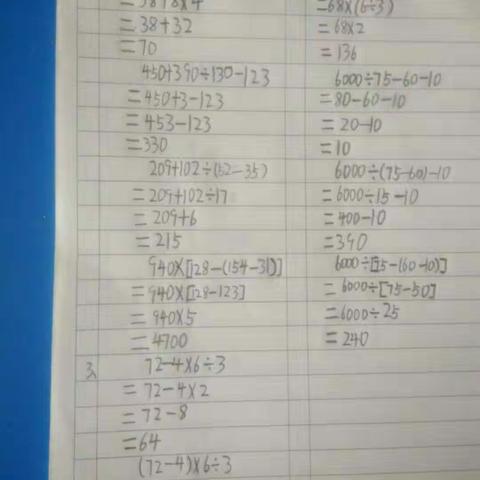 =38+8×4
=38+32
=70
450+390÷130-123
=450+3-123
=453-123
=330
209+102÷(52-35)
=209+102÷17
=209+6
=215
940×[128-(154-31)]
=940×[128-123]
=940×5
=4700
3、
72-4×6÷3
=72-4×2
=72-8
=64
(72-4)×6÷3
=68×(6÷3)
=68×2
=136
6000÷75-60-10
=80-60-10
=20-10
=10
6000÷(75-60)-10
=6000÷15-10
=400-10
=390
6000÷[75-(60-10)]
=6000÷[75-50]
=6000÷25
=240